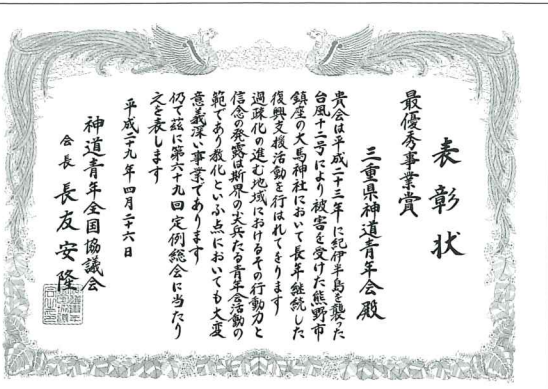 表彰状
最優秀事業賞
三重県神道青年会殿
貴会は平成二十三年に紀伊半島を襲った
台風十二号により被害を受けた熊野市
鎮座の大馬神社において長年継続した
復興支援活動を行はれてをります
過疎化の進む地域におけるその行動力と
信念の発露は斯界の尖兵たる青年会活動の
範であり教化といふ点においても大変
意義深い事業であります
仍て茲に第六十九回定例総会に当たり
文を表します
平成二十九年四月二十六日
神道青年全国協議会
会長 長友安隆